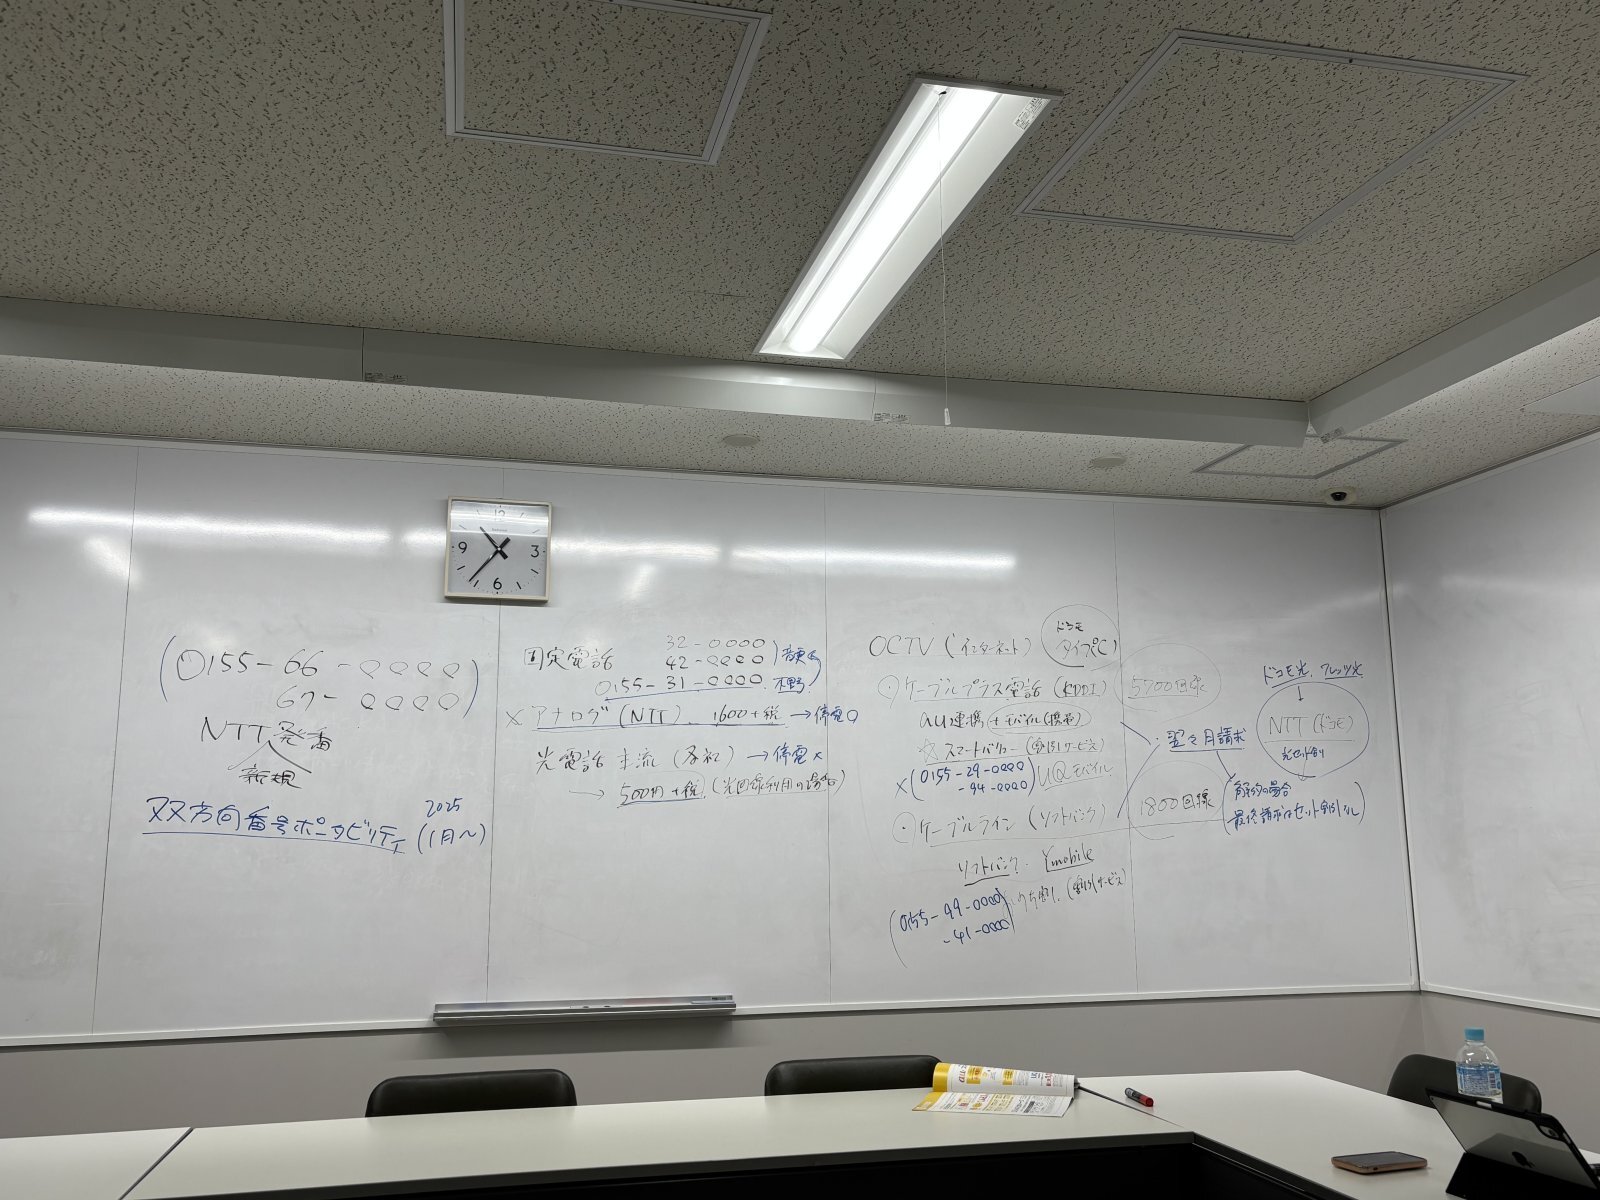 12
3
6
9
(0155-66-0000)
67-0000
NTT発番
新規
双方向番号ポータビリティ (1月~)
2025
固定電話
32-0000
42-0000 音更
0155-31-0000
× アナログ(NTT) 1600+税 → 停電○
光電話 主流 (各社) → 停電×
→ 500円+税 (光回線利用の場合)
OCTV (インターネット)
ドコモ
タイプC
・ケーブルプラス電話 (KDDI)
5700回線
au連携 + モバイル(携帯)
☆スマートバリュー (割引サービス)
×(0155-29-0000) UQモバイル
-94-0000
・ケーブルライン (ソフトバンク)
1800回線
ソフトバンク・Ymobile
(0155-99-0000) (割引サービス)
-41-0000
・翌々月請求
解約の場合
最終請求はセット割引
ドコモ光、フレッツ光
↓
NTT (ドコモ)
光セット割